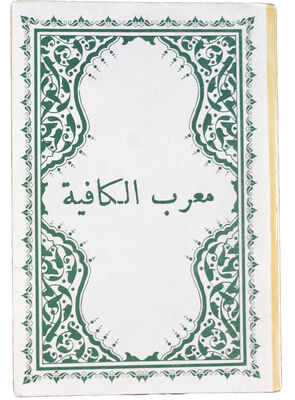 معرب الكافية